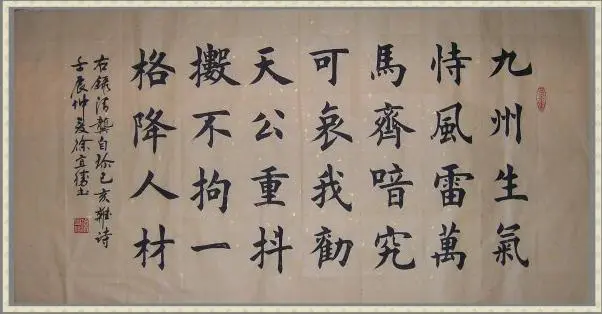 九州生氣
恃風雷萬
馬齊喑究
可哀我勸
天公重抖
擻不拘一
格降人材
右録清龔自珍己亥雜诗
壬辰仲夏徐宜书